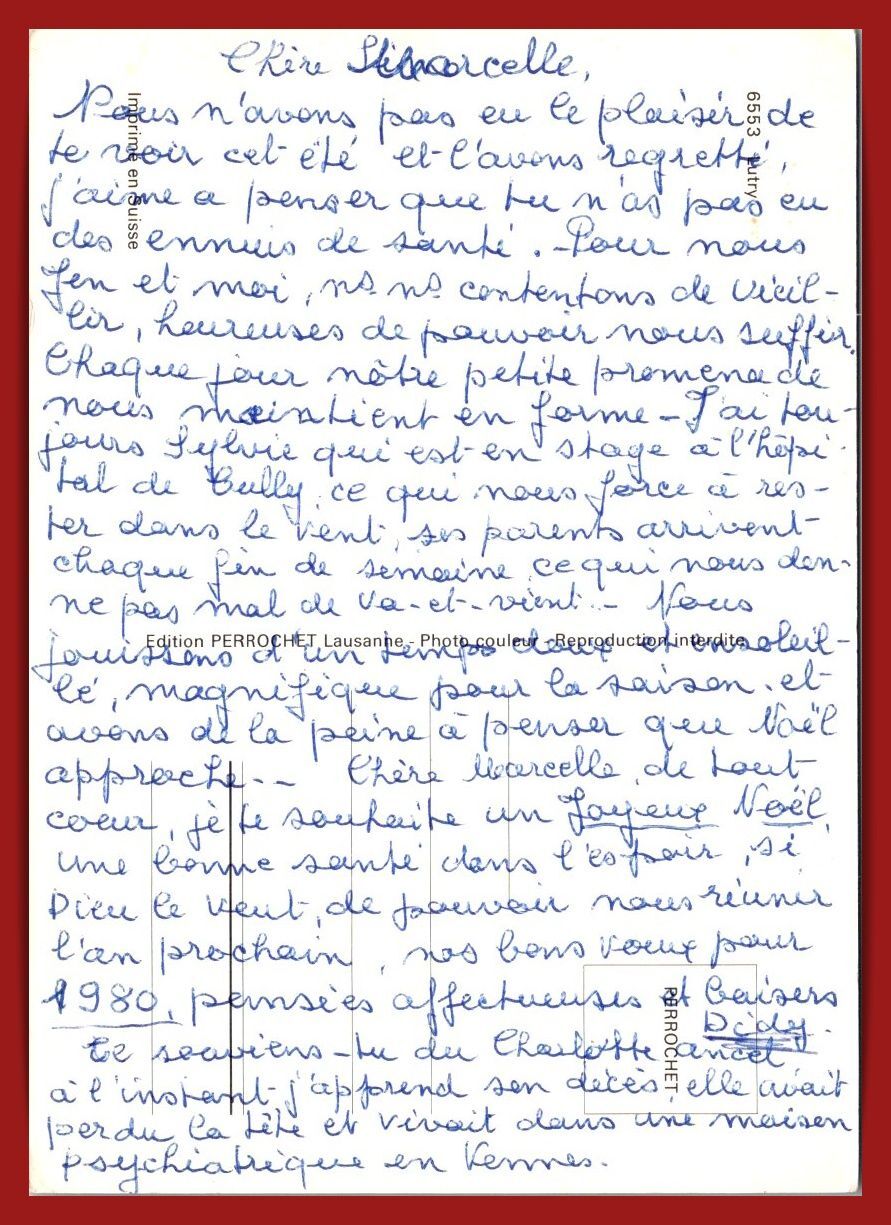 Chère Marcelle,
Nous n'avons pas eu le plaisir de
te voir cet été et l'avons regretté,
j'aime a penser que tu n'as pas eu
des ennuis de santé. - Pour nous
Jen et moi, ns ns contentons de vieil-
lir, heureuses de pouvoir nous suffir.
Chaque jour nôtre petite promenade
nous maintient en forme - J'ai tou-
jours Sylvie qui est en stage à l'hôpi-
tal de Cully, ce qui nous force à res-
ter dans le vent, ses parents arrivent
chaque fin de semaine, ce qui nous don-
ne pas mal de va-et-vient. - Nous
jouissons d'un temps doux et ensoleil-
lé, magnifique pour la saison. et
avons de la peine à penser que Noël
approche - - Chère Marcelle, de tout
coeur, je te souhaite un Joyeux Noël,
une bonne santé dans l'espoir, si
Dieu le veut, de pouvoir nous réunir
l'an prochain, nos bons voeux pour
1980, pensées affectueuses et baisers
Didy.
Te souviens-tu du Charlotte ancel
à l'instant j'apprend son décès, elle avait
perdu la tête et vivait dans une maison
psychiatrique en Vennes.
Imprimé en Suisse
6553 Lutry
Edition PERROCHET Lausanne - Photo couleur - Reproduction interdite
PERROCHET